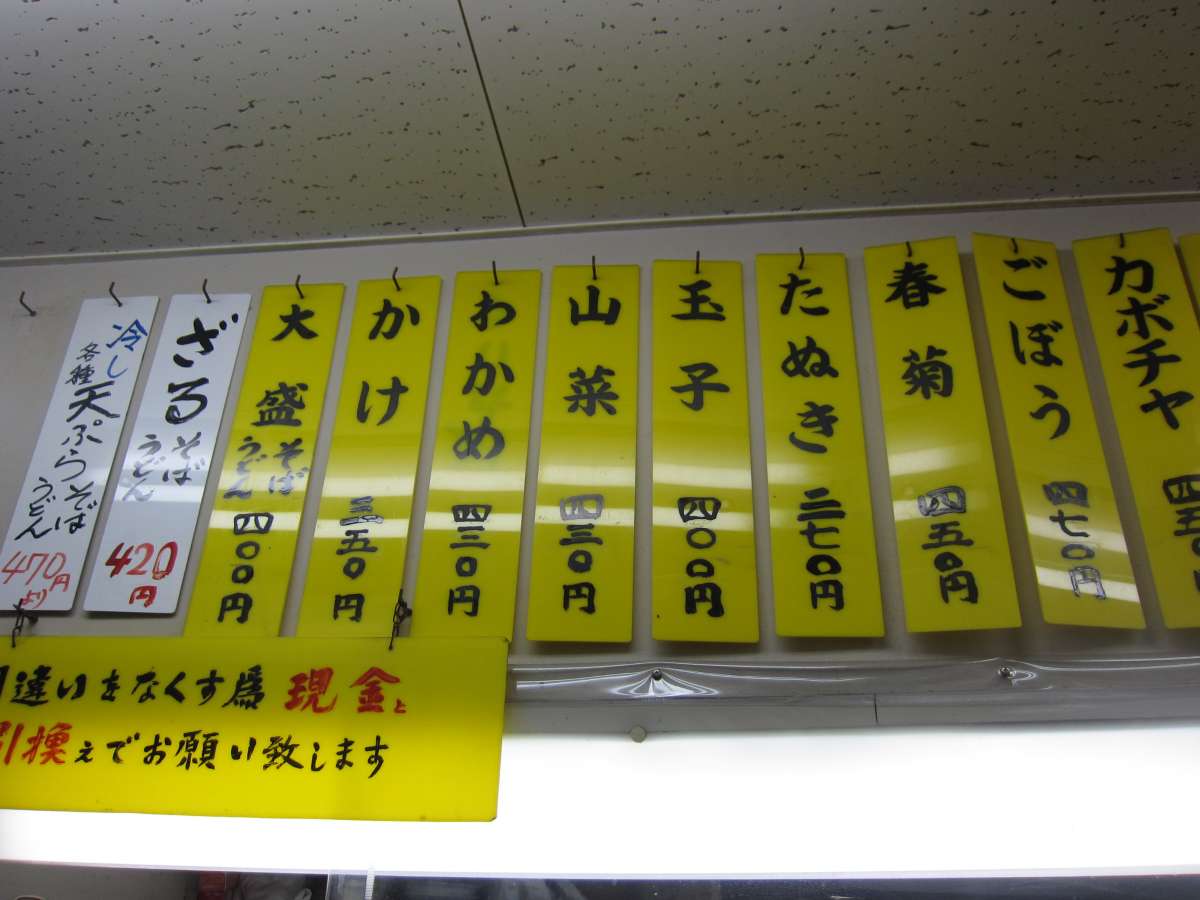 冷し
各種
天ぷらそば
うどん
470円
より
ざる
そば
うどん
420
円
大盛
そば
うどん
四〇〇円
かけ
三五〇円
わかめ
四三〇円
山菜
四三〇円
玉子
四〇〇円
たぬき
三七〇円
春菊
四五〇円
ごぼう
四七〇円
カボチャ
四五〇
違いをなくす為現金と
引換えでお願い致します